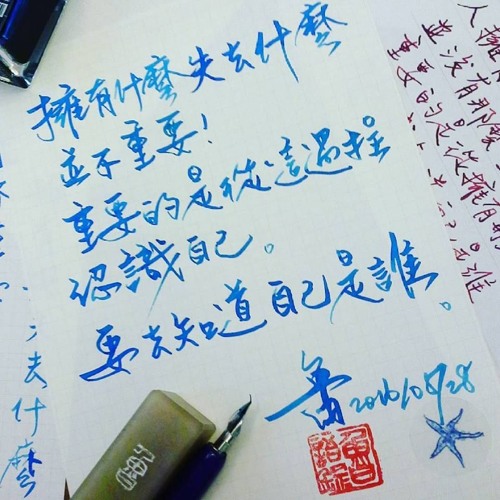 擁有什麼失去什麼
並不重要!
重要的是從這過程
認識自己。
要去知道自己是誰。
人擁
並沒有那麼
重要的是從擁有
去什麼